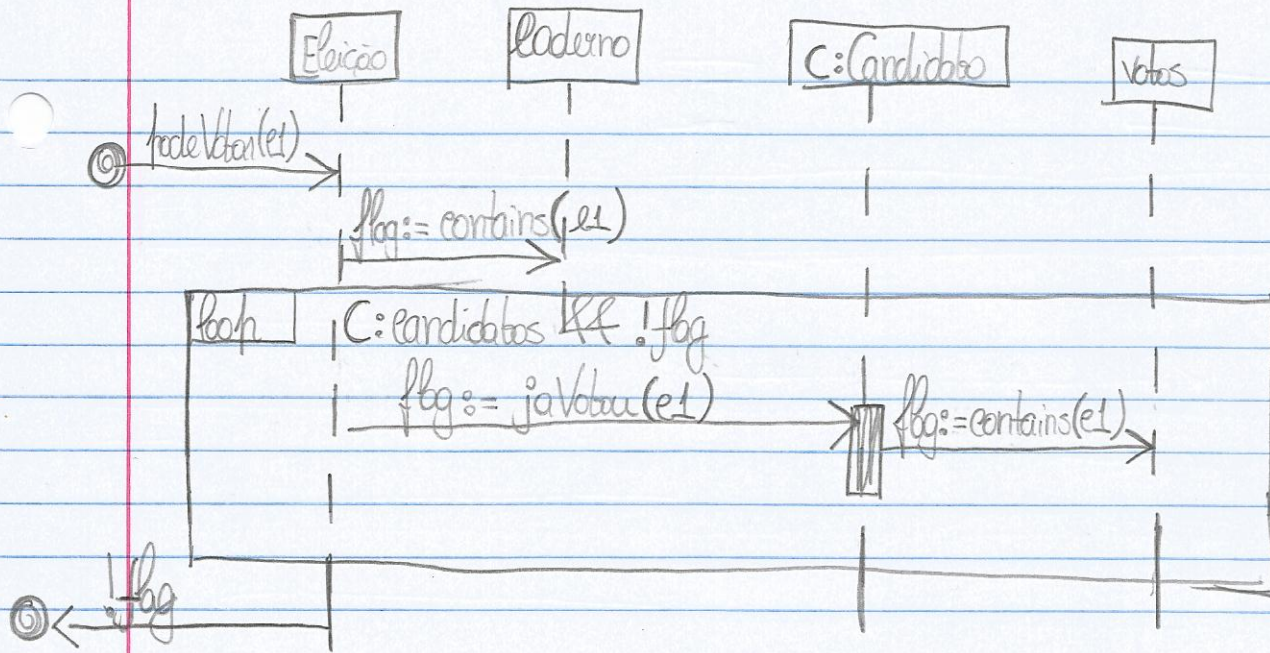 Eleição
Caderno
C:Candidato
Votos
podeVotar(e1)
flag:= contains(e1)
loop
C:candidatos && !flag
flag:= jaVotou(e1)
flag:=contains(e1)
!flag